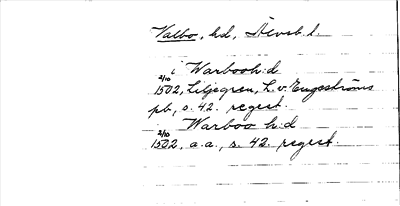 Valbo, hd, Älvsb. l.
i Warbooh:d
2/10
1502, Liljegren, L. v. Engeströms
pb, s. 42. regest.
i Warboo h:d
2/10
1502, a.a., s. 42. regest.